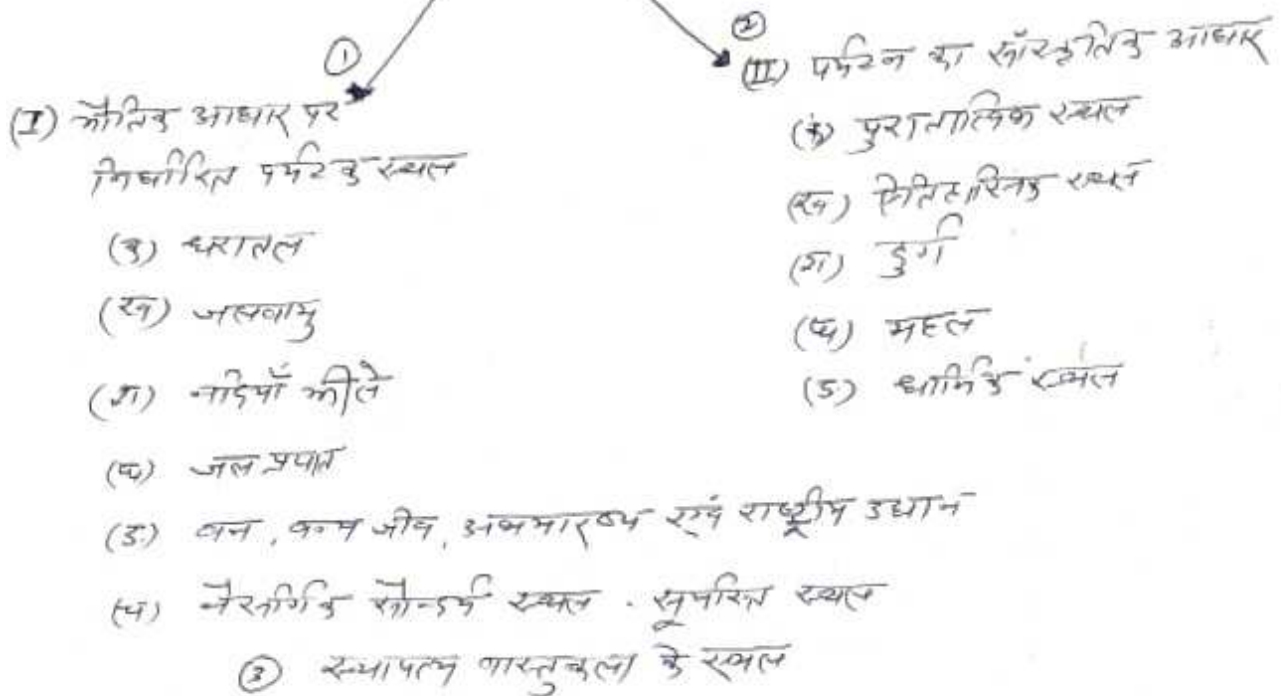 ①
(I) भौतिक आधार पर
निर्धारित पर्यटक स्थल
(क) धरातल
(ख) जलवायु
(ग) नदियाँ झीले
(घ) जल प्रपात
(ङ) वन, वन्य जीव, अभयारण्य एवं राष्ट्रीय उद्यान
(च) नैसर्गिक सौन्दर्य स्थल . सूर्यास्त स्थल
②
(II) पर्यटन का साँस्कृतिक आधार
(क) पुरातात्विक स्थल
(ख) ऐतिहासिक स्थल
(ग) दुर्ग
(घ) महल
(ङ) धार्मिक स्थल
③ स्थापत्य वास्तुकला के स्थल